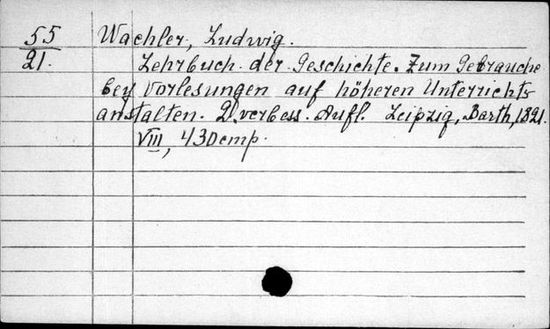 55 Wachler, Ludwig.
21. Lehrbuch der Geschichte. Zum Gebrauche
bey Vorlesungen auf höheren Unterrichts-
anstalten. 2 verbess. Aufl. Leipzig, Barth, 1821.
VIII, 430 стр.